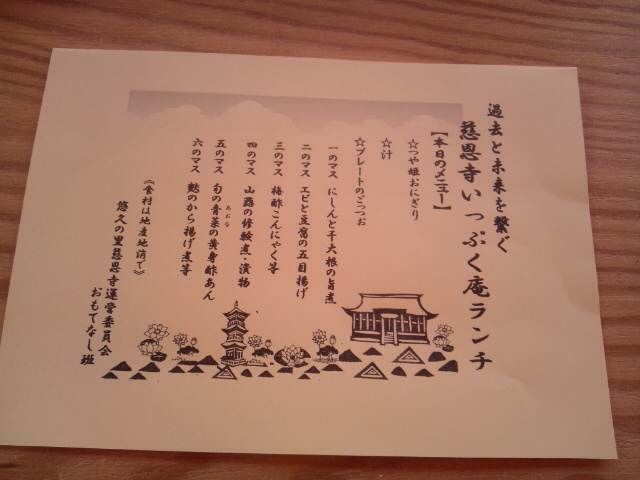 過去と未来を繋ぐ
慈恩寺いっぷく庵ランチ
【本日のメニュー】
☆つや姫おにぎり
☆汁
☆プレートのごっつぉ
一のマス にしんと干大根の旨煮
二のマス エビと豆腐の五目揚げ
三のマス 梅酢こんにゃく等
四のマス 山蕗の修験煮・漬物
五のマス 旬の青菜の黄身酢あん
あおな
六のマス 麩のから揚げ煮等
《食材は地産地消で》
悠久の里慈恩寺運営委員会
おもてなし班